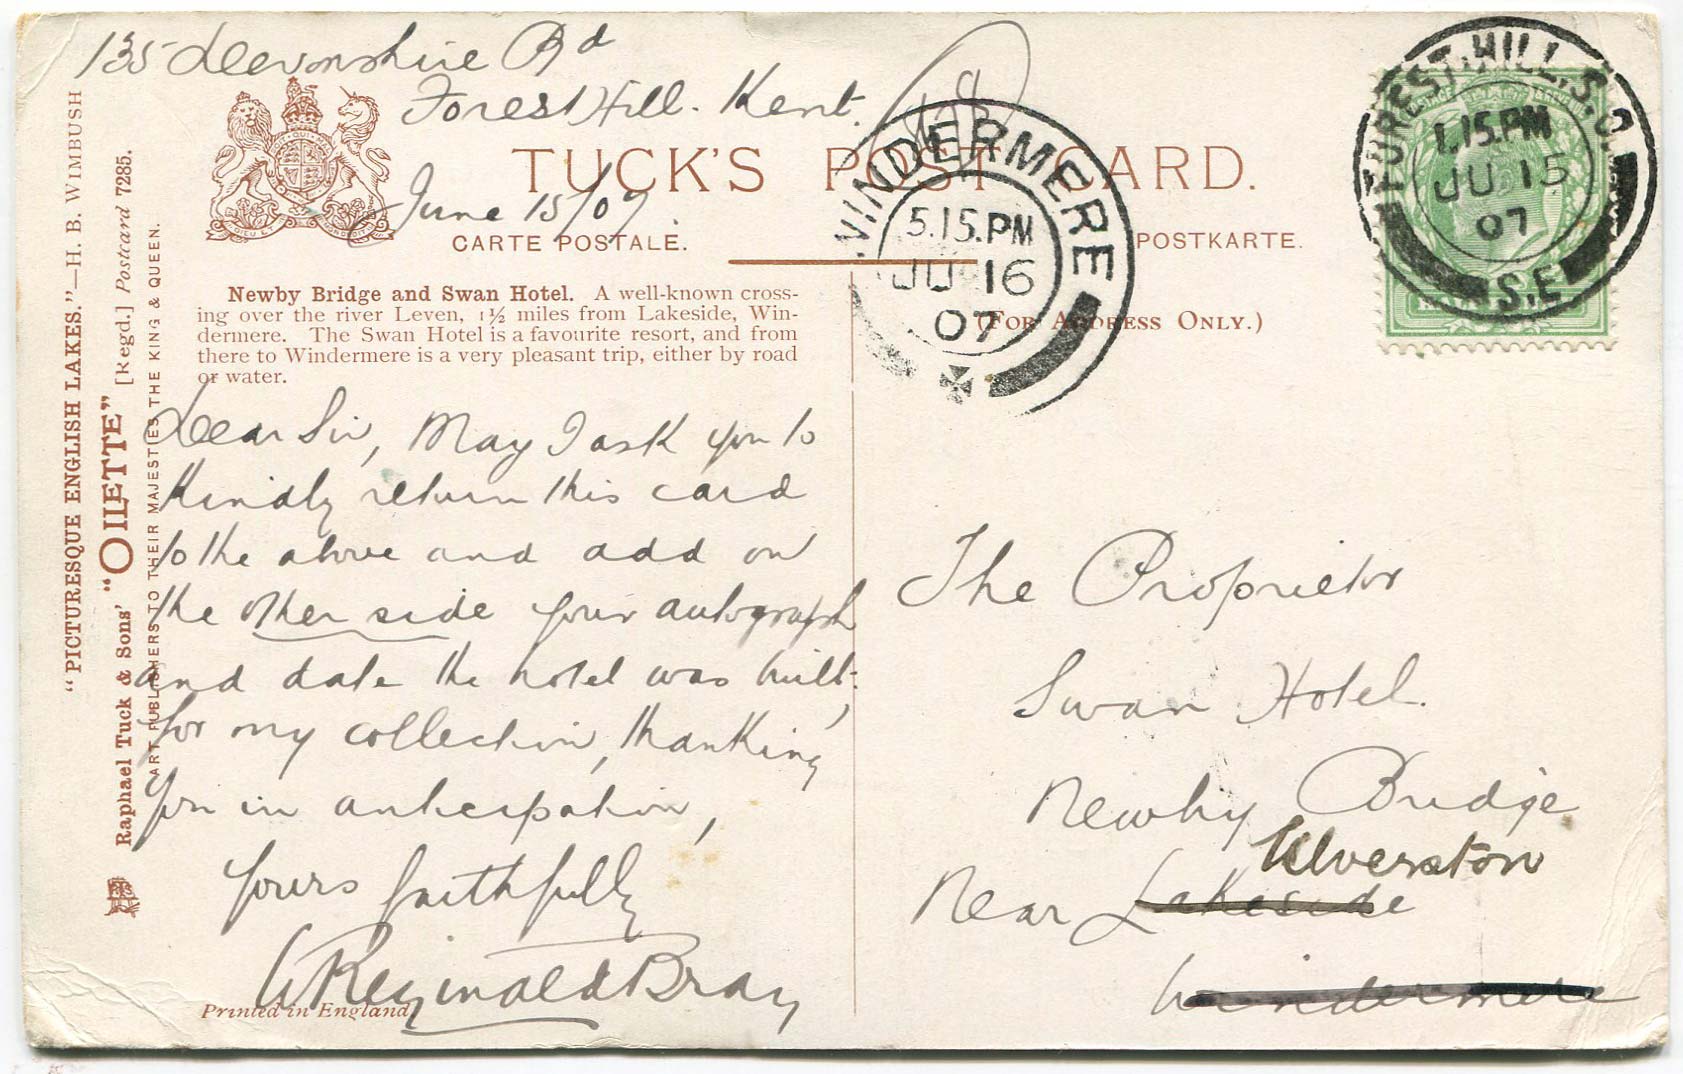 135 Devonshire Rd
Forest Hill. Kent.
June 15/07.
TUCK'S POST CARD.
CARTE POSTALE.
POSTKARTE.
(FOR ADDRESS ONLY.)
WINDERMERE
5.15.PM
JU 16
07
FOREST.HILL.S.O.
1.15.PM
JU 15
07
S.E
Newby Bridge and Swan Hotel. A well-known cross-
ing over the river Leven, 1½ miles from Lakeside, Win-
dermere. The Swan Hotel is a favourite resort, and from
there to Windermere is a very pleasant trip, either by road
or water.
"PICTURESQUE ENGLISH LAKES."—H. B. WIMBUSH
Raphael Tuck & Sons' "OILETTE" [Regd.] Postcard 7285.
ART PUBLISHERS TO THEIR MAJESTIES THE KING & QUEEN.
Dear Sir, May I ask you to
kindly return this card
to the above and add on
the other side your autograph
and date the hotel was built,
for my collection, thanking
you in anticipation,
Yours faithfully
W Reginald Bray
Printed in England
The Proprietor
Swan Hotel.
Newby Bridge
Ulverston
Near Lakeside
Windermere